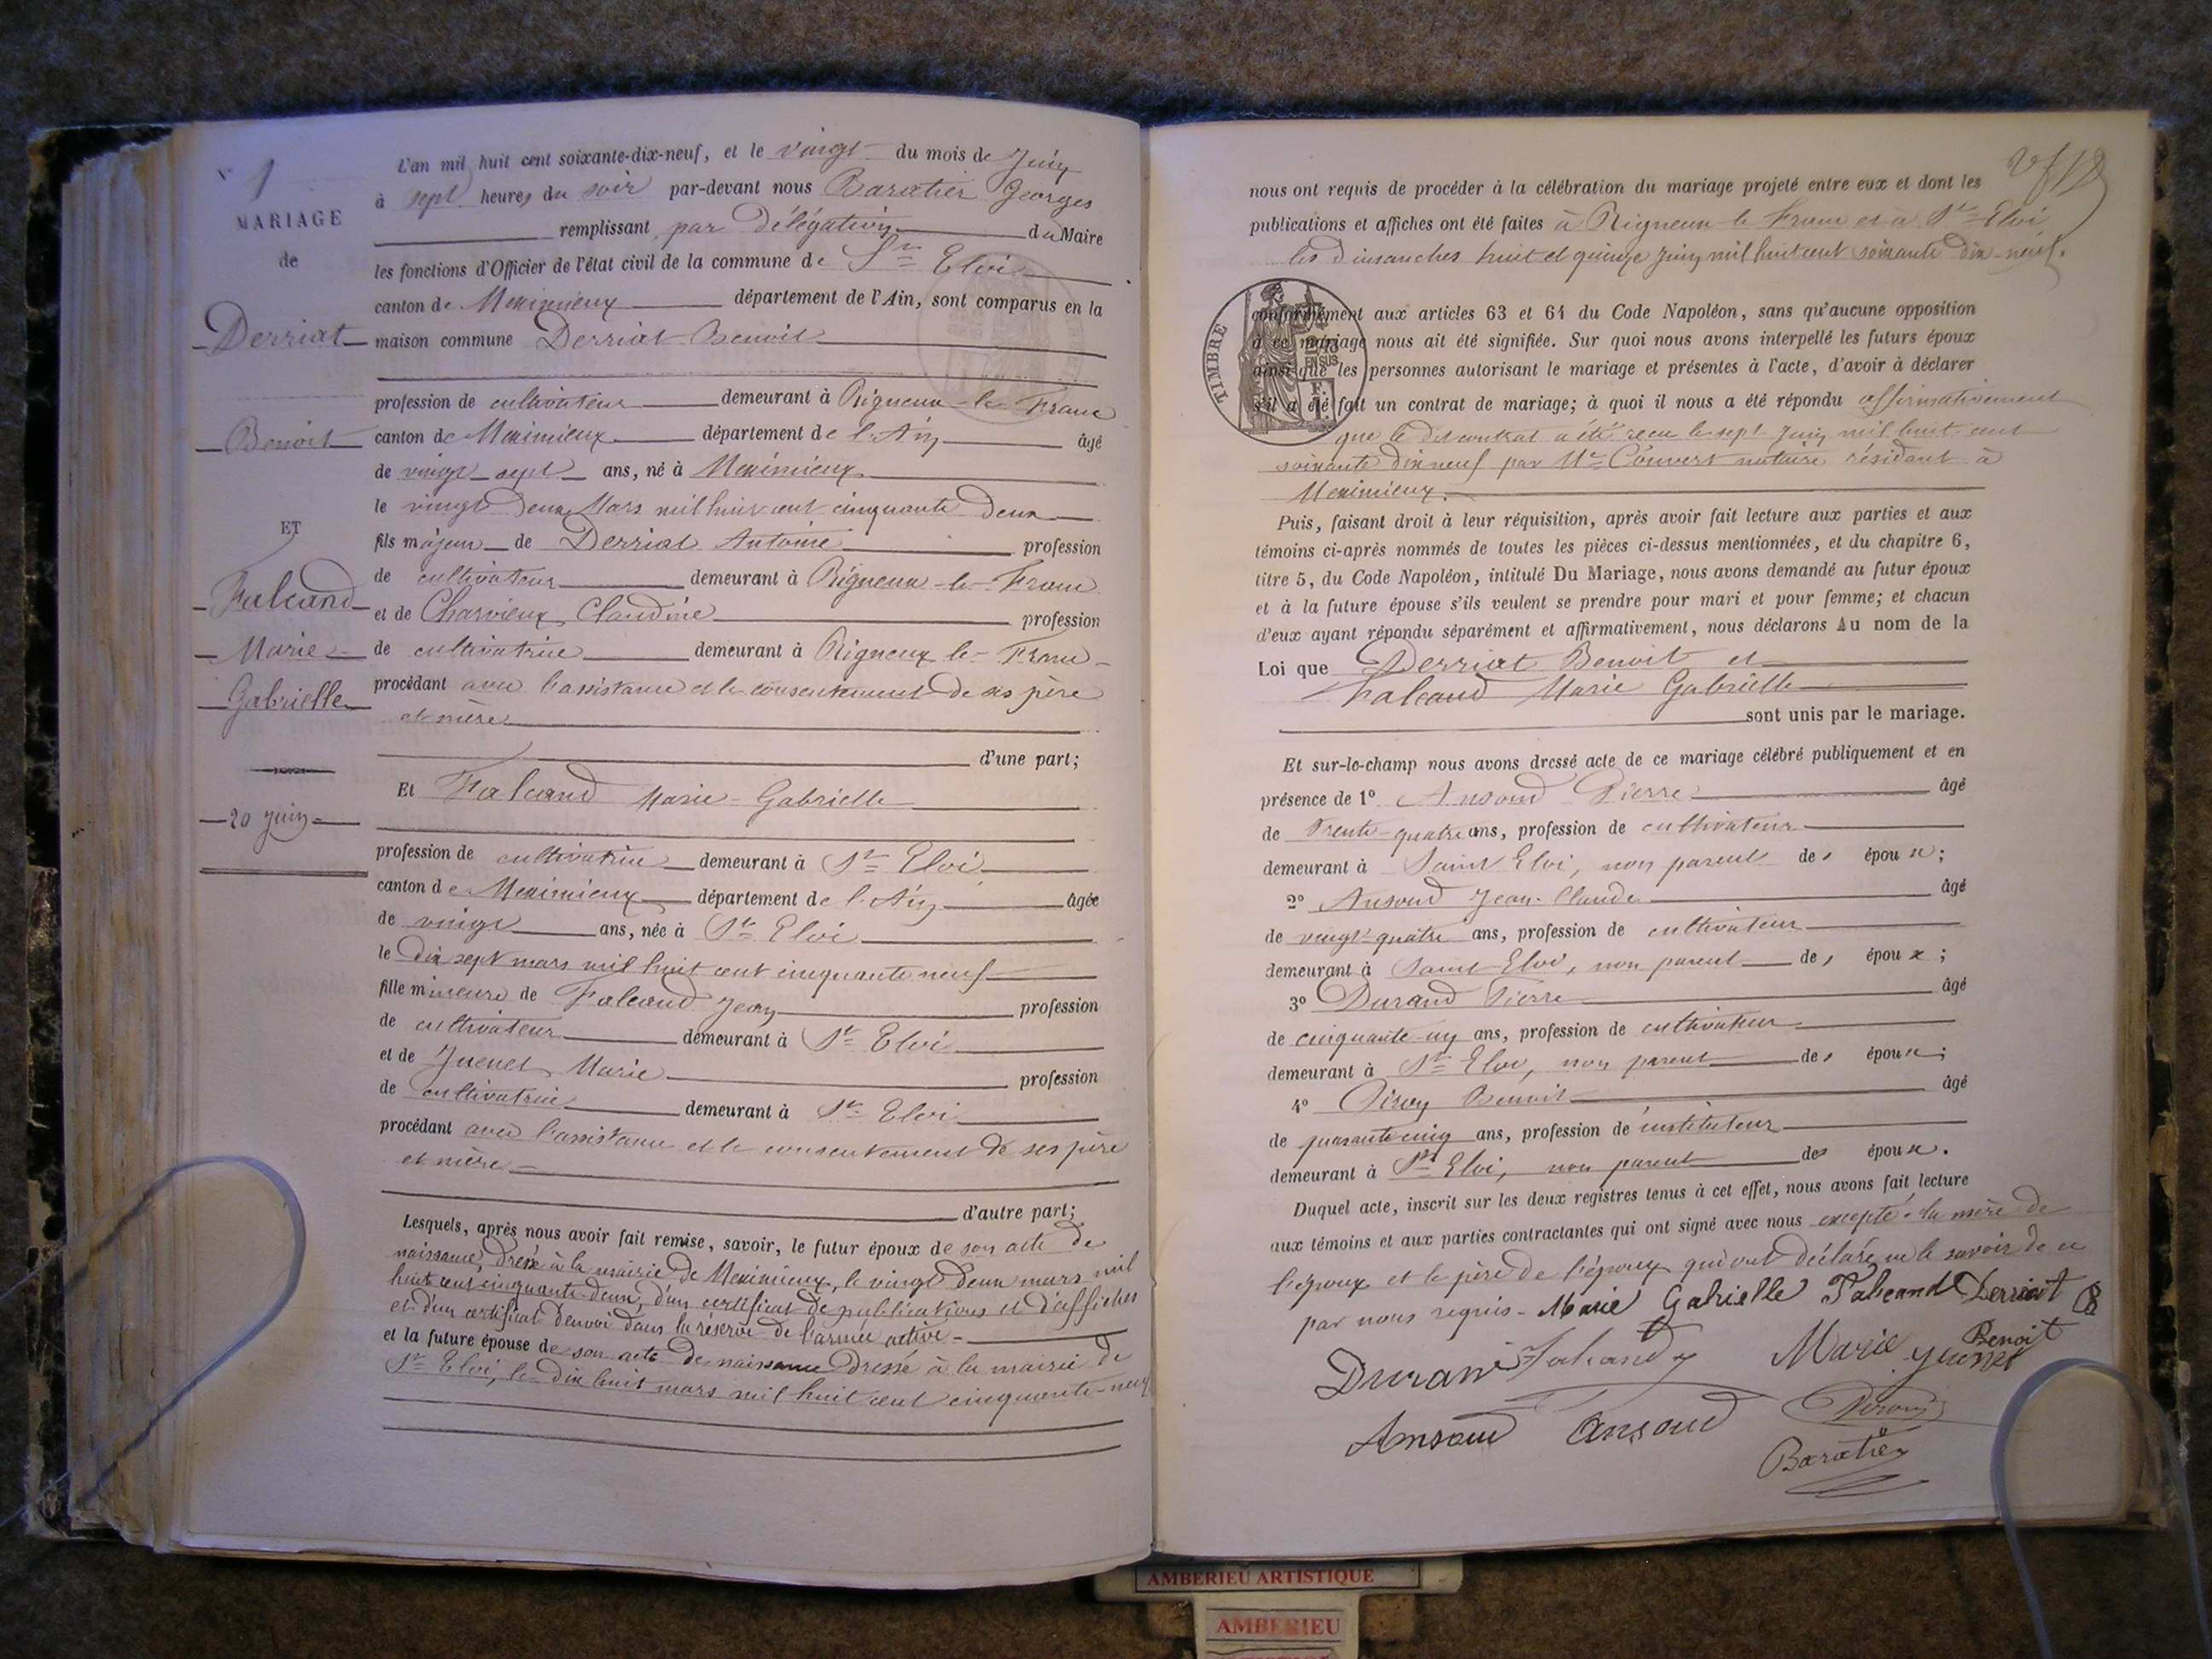 N° 1
MARIAGE
de
Derriat
Benoit
ET
Falcand
Marie
Gabrielle
20 juin
L'an mil huit cent soixante-dix-neuf, et le vingt du mois de Juin
à sept heures du soir par-devant nous Baratier Georges
remplissant par délégation du Maire
les fonctions d'Officier de l'état civil de la commune de St Eloi
canton de Meximieux département de l'Ain, sont comparus en la
maison commune Derriat Benoit
profession de cultivateur demeurant à Rigneux-le-Franc
canton de Meximieux département de l'Ain âgé
de vingt-sept ans, né à Meximieux
le vingt deux Mars mil huit cent cinquante deux
fils majeur de Derriat Antoine profession
de cultivateur demeurant à Rigneux-le-Franc
et de Charvieux Claudine profession
de cultivatrice demeurant à Rigneux le-Franc
procédant avec l'assistance et le consentement de ses père
et mère
d'une part;
Et Falcand Marie-Gabrielle
profession de cultivatrice demeurant à St Eloi
canton de Meximieux département de l'Ain âgée
de vingt ans, née à St Eloi
le dix sept mars mil huit cent cinquante neuf
fille mineure de Falcand Jean profession
de cultivateur demeurant à St Eloi
et de Juenet Marie profession
de cultivatrice demeurant à St Eloi
procédant avec l'assistance et le consentement de ses père
et mère
d'autre part;
Lesquels, après nous avoir fait remise, savoir, le futur époux de son acte de
naissance, dressé à la mairie de Meximieux, le vingt deux mars mil
huit cent cinquante-deux, d'un certificat de publications et d'affiches
et d'un certificat d'envoi dans la réserve de l'armée active
et la future épouse de son acte de naissance dressé à la mairie de
St Eloi, le dix huit mars mil huit cent cinquante-neuf
nous ont requis de procéder à la célébration du mariage projeté entre eux et dont les
publications et affiches ont été faites à Rigneux-le Franc et à St Eloi
les dimanches huit et quinze juin mil huit cent soixante dix-neuf.
TIMBRE
EN SUS
conformément aux articles 63 et 64 du Code Napoléon, sans qu'aucune opposition
à ce mariage nous ait été signifiée. Sur quoi nous avons interpellé les futurs époux
ainsi que les personnes autorisant le mariage et présentes à l'acte, d'avoir à déclarer
s'il a été fait un contrat de mariage; à quoi il nous a été répondu affirmativement
que le dit contrat a été recu le sept juin mil huit cent
soixante dix neuf par Me Convert notaire résidant à
Meximieux.
Puis, faisant droit à leur réquisition, après avoir fait lecture aux parties et aux
témoins ci-après nommés de toutes les pièces ci-dessus mentionnées, et du chapitre 6,
titre 5, du Code Napoléon, intitulé Du Mariage, nous avons demandé au futur époux
et à la future épouse s'ils veulent se prendre pour mari et pour femme; et chacun
d'eux ayant répondu séparément et affirmativement, nous déclarons Au nom de la
Loi que Derriat Benoit et
Falcand Marie Gabrielle
sont unis par le mariage.
Et sur-le-champ nous avons dressé acte de ce mariage célébré publiquement et en
présence de 1° Ansoud Pierre âgé
de Trente-quatre ans, profession de cultivateur
demeurant à Saint Eloi, non parent des époux;
2° Ansoud Jean-Claude âgé
de vingt-quatre ans, profession de cultivateur
demeurant à Saint Eloi, non parent des époux;
3° Durand Pierre âgé
de cinquante-un ans, profession de cultivateur
demeurant à St Eloi, non parent des époux;
4° Benoit âgé
de quarante cinq ans, profession de instituteur
demeurant à St Eloi, non parent des époux.
Duquel acte, inscrit sur les deux registres tenus à cet effet, nous avons fait lecture
aux témoins et aux parties contractantes qui ont signé avec nous excepté la mère de
l'époux et le père de l'époux qui ont déclaré ne le savoir de ce
par nous requis - Marie Gabrielle Falcand Derriat
Benoit
Durand Falcand Marie Juenet
Ansoud Ansoud
Baratier
AMBERIEU ARTISTIQUE
AMBERIEU